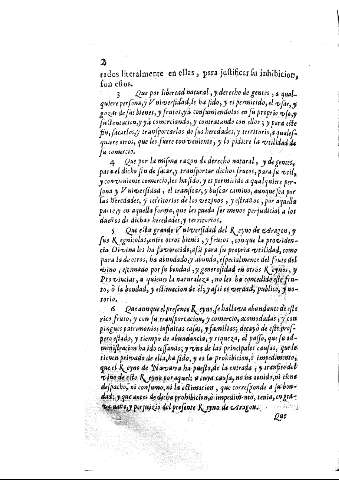 2
rados literalmente en ellas, para justificar su inhibicion,
son estos.
3 Que por libertad natural, y derecho de gentes, a qual-
quiere persona, y Vniversidad, le ha sido, y es permitido, el vsar, y
gozar de sus bienes, y frutos, yà consumiendolos en su proprio vso, y
sustentacion, y yà comerciando, y contratando con ellos; y para este
fin, sacarlos, y transportarlos de sus heredades, y territorio, a qualesquiere
otros, que les fuere conveniente, y lo pidiere la vtilidad de
su comercio.
4 Que por la misma razon de derecho natural, y de gentes,
para el dicho fin de sacar, y transportar dichos frutos, para su vtil,
y conveniente comercio, les ha sido, y es permitido a qualquiere per-
sona y Vniversidad, el transitar, y buscar camino, aunque sea por
las heredades, y territorios de los vezinos, y estraños, por aquella
parte, y en aquella forma, que les pueda ser menos perjudicial a los
dueños de dichas heredades, y territorios.
5 Que esta grande Vniversidad del Reyno de Aragon, y
sus Regnicolas, entre otros bienes, y frutos, con que la providen-
cia Divina les ha favorecido, assi para su propria vtilidad, como
para la de otros, ha abundado, y abunda, especialmente del fruto del
vino, estimado por su bondad, y generosidad en otros Reynos, y
Provincias, a quienes la naturaleza, no les ha concedido este fru-
to, ò la bondad, y estimacion de èl; y assi es verdad, publico, y no-
torio.
6 Que aunque el presente Reyno, se hallava abundante de este
rico fruto, y con su transportacion, y comercio, acomodadas, y con
pingues patrimonios infinitas casas, y familias; decayò de este pros-
pero estado, y tiempo de abundancia, y riqueza, al passo, que su ad-
ministracion ha ido cessando; y vna de las principales causas, que le
tienen privado de ella, ha sido, y es la prohibicion, ò impedimento,
que el Reyno de Navarra ha puesto, de la entrada, y transito del
vino de este Reyno por aquel: a cuya causa, no ha tenido, ni tiene
despacho, ni consumo, ni la estimacion, que corresponde a su bon-
dad; y que antes de dicha prohibicion, ò impedimento, tenia, en gra-
ve daño, y perjuizio del presente Reyno de Aragon.
Que